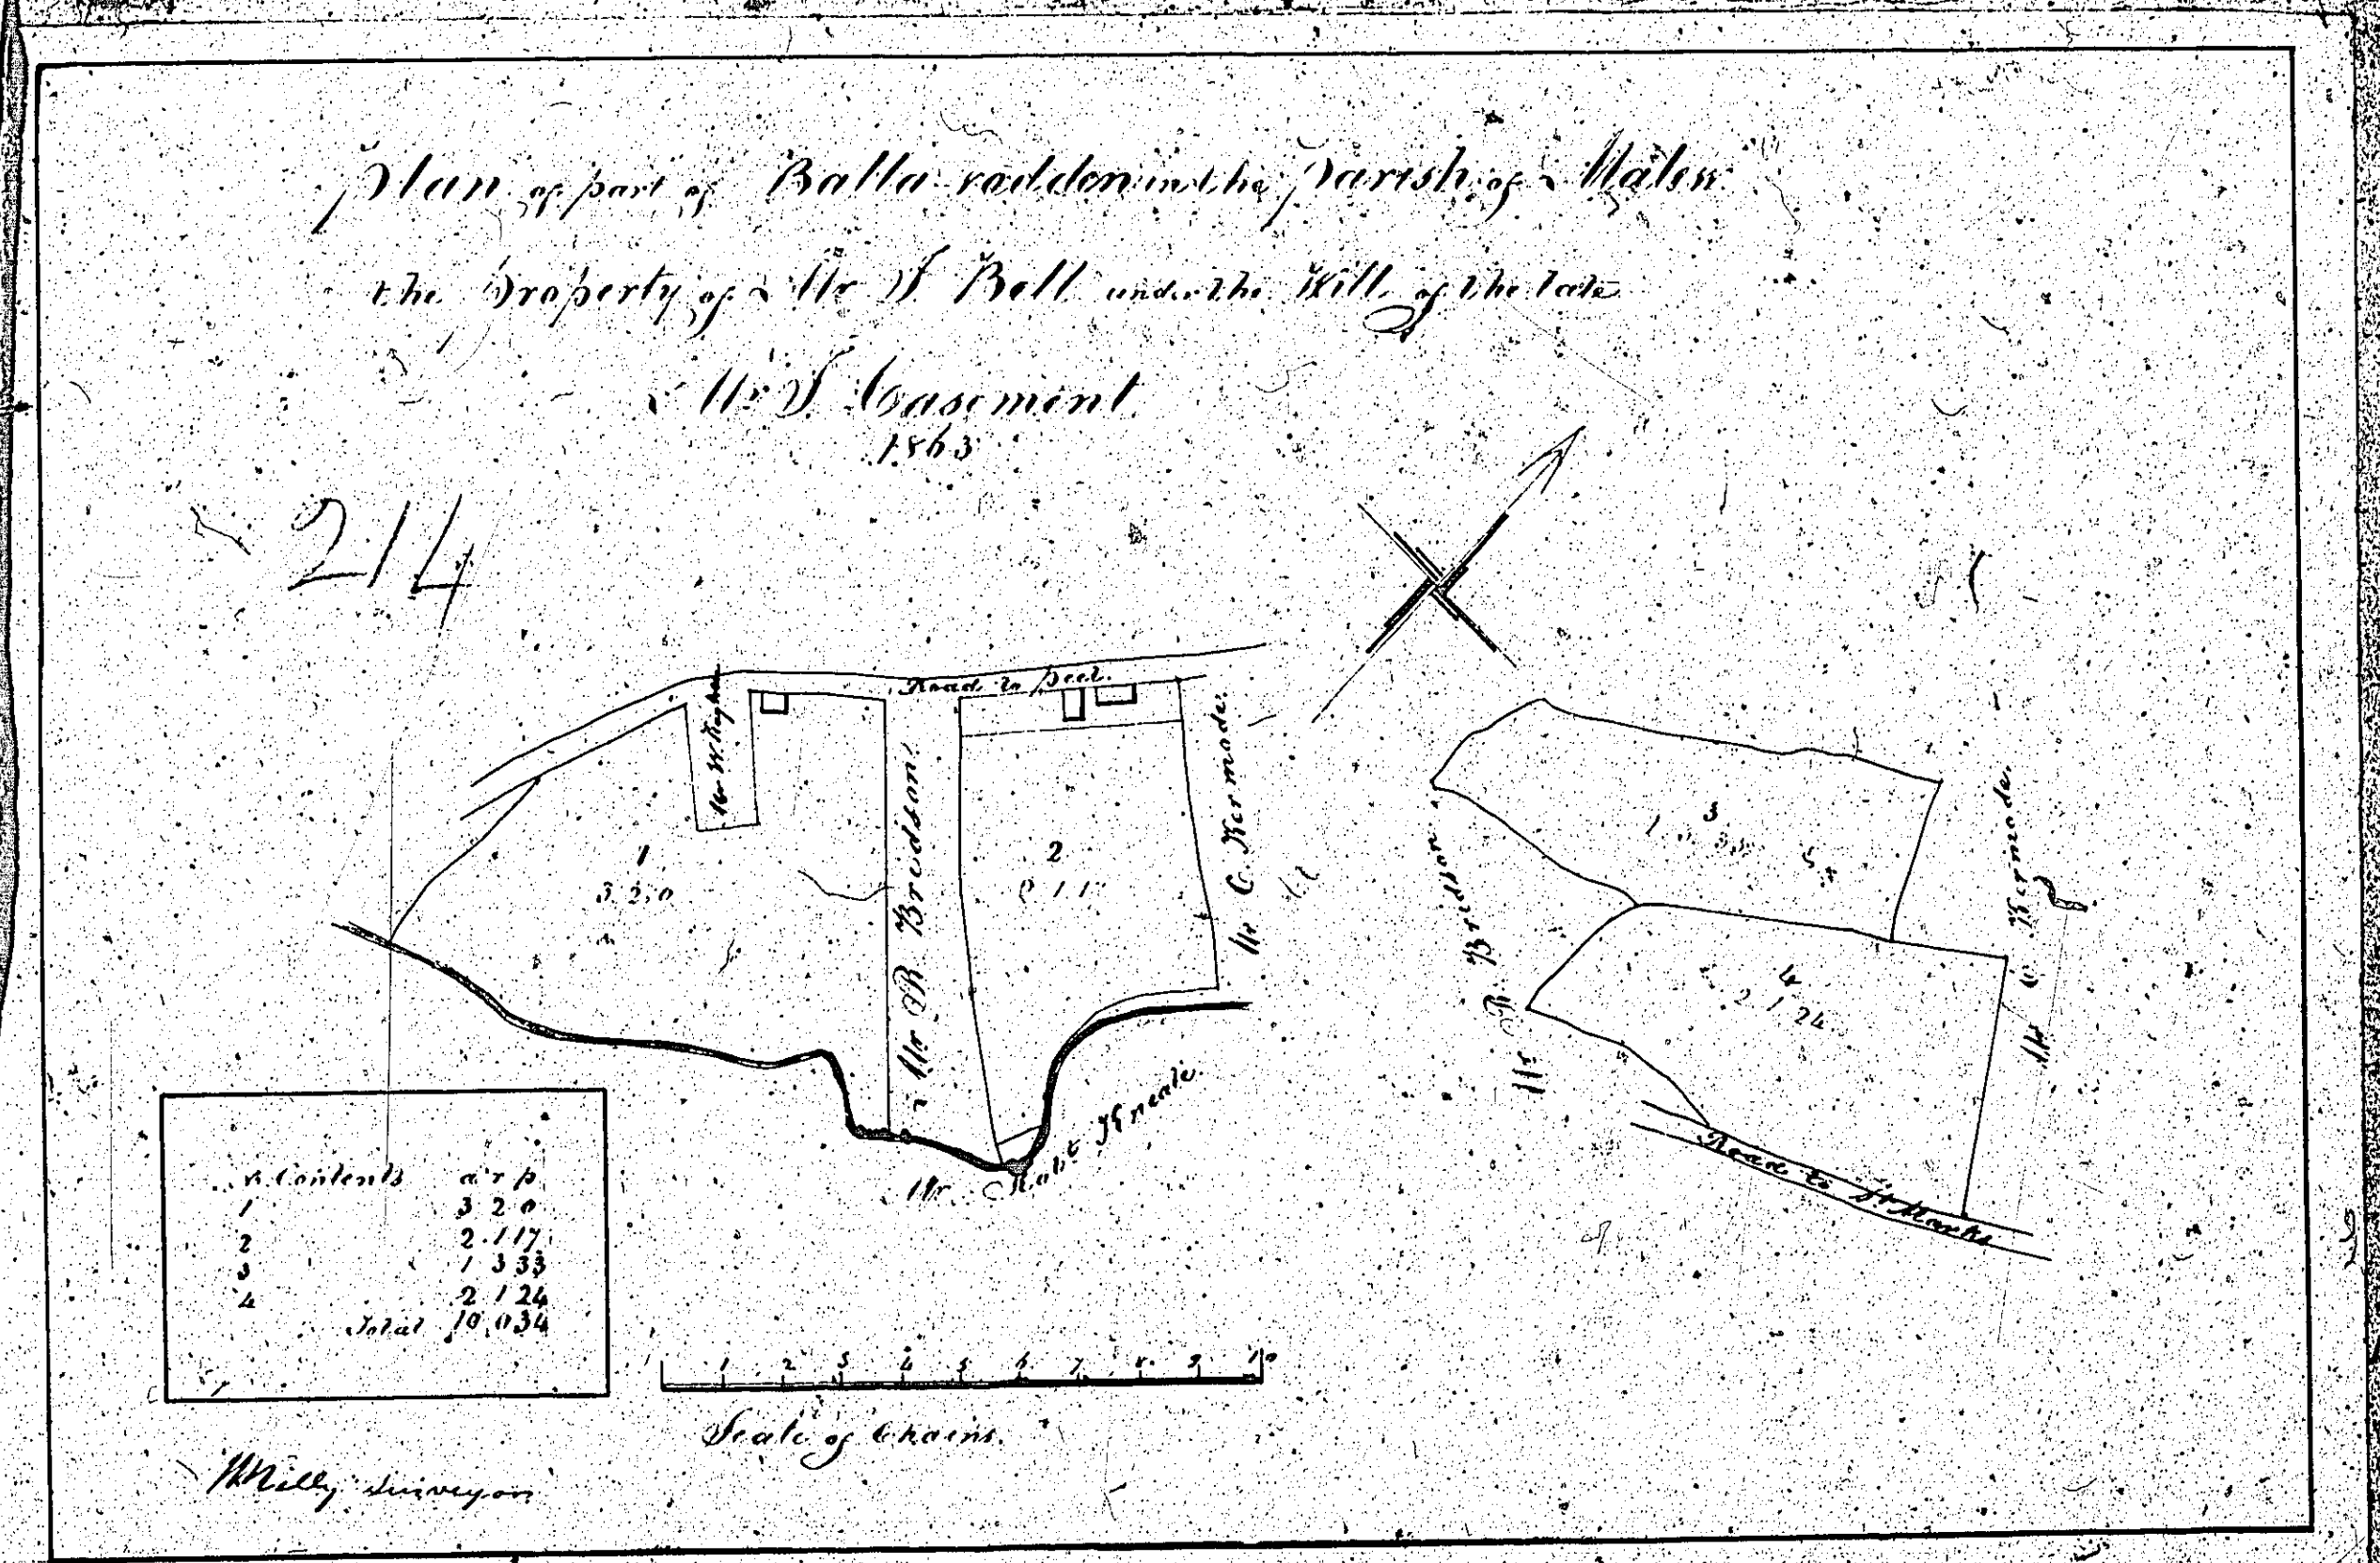 Plan of part of Balla vodden in the Parish of Malew
the Property of Mr T. Bell under the Will of the late
Mr T. Casement
1863
214
Road to Peel.
Mr W
Mr R Bridson
Mr C. Kermode
1
3 2,0
2
2 1 1
Mr Robt Kneale
3
1 3 33
4
2 1 24
Mr R Bridson
Mr C Kermode
Road to St Marks
Contents a r p
1 3 2 0
2 2.1 17
3 1 3 33
4 2 1 24
Total 10,0 34
1 2 3 4 5 6 7 8 9 10
Scale of Chains.
surveyor